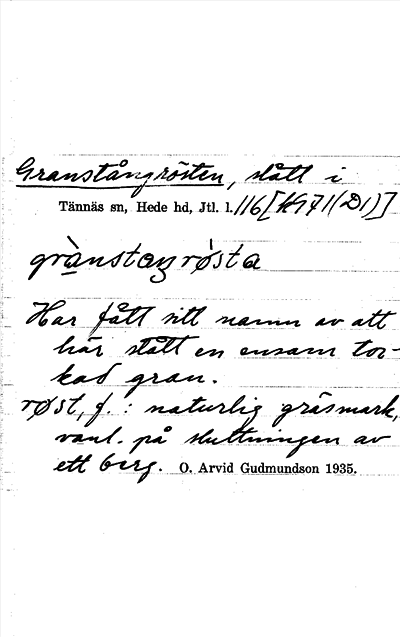 Granstångrösten, slått i
Tännäs sn, Hede hd, Jtl. l. 116[HG71(D1)]
grànstaŋrø̀sta
Har fått sitt namn av att
här stått en ensam tor-
kad gran.
røst, f. : naturlig gräsmark,
vanl. på sluttningen av
ett berg. O. Arvid Gudmundson 1935.